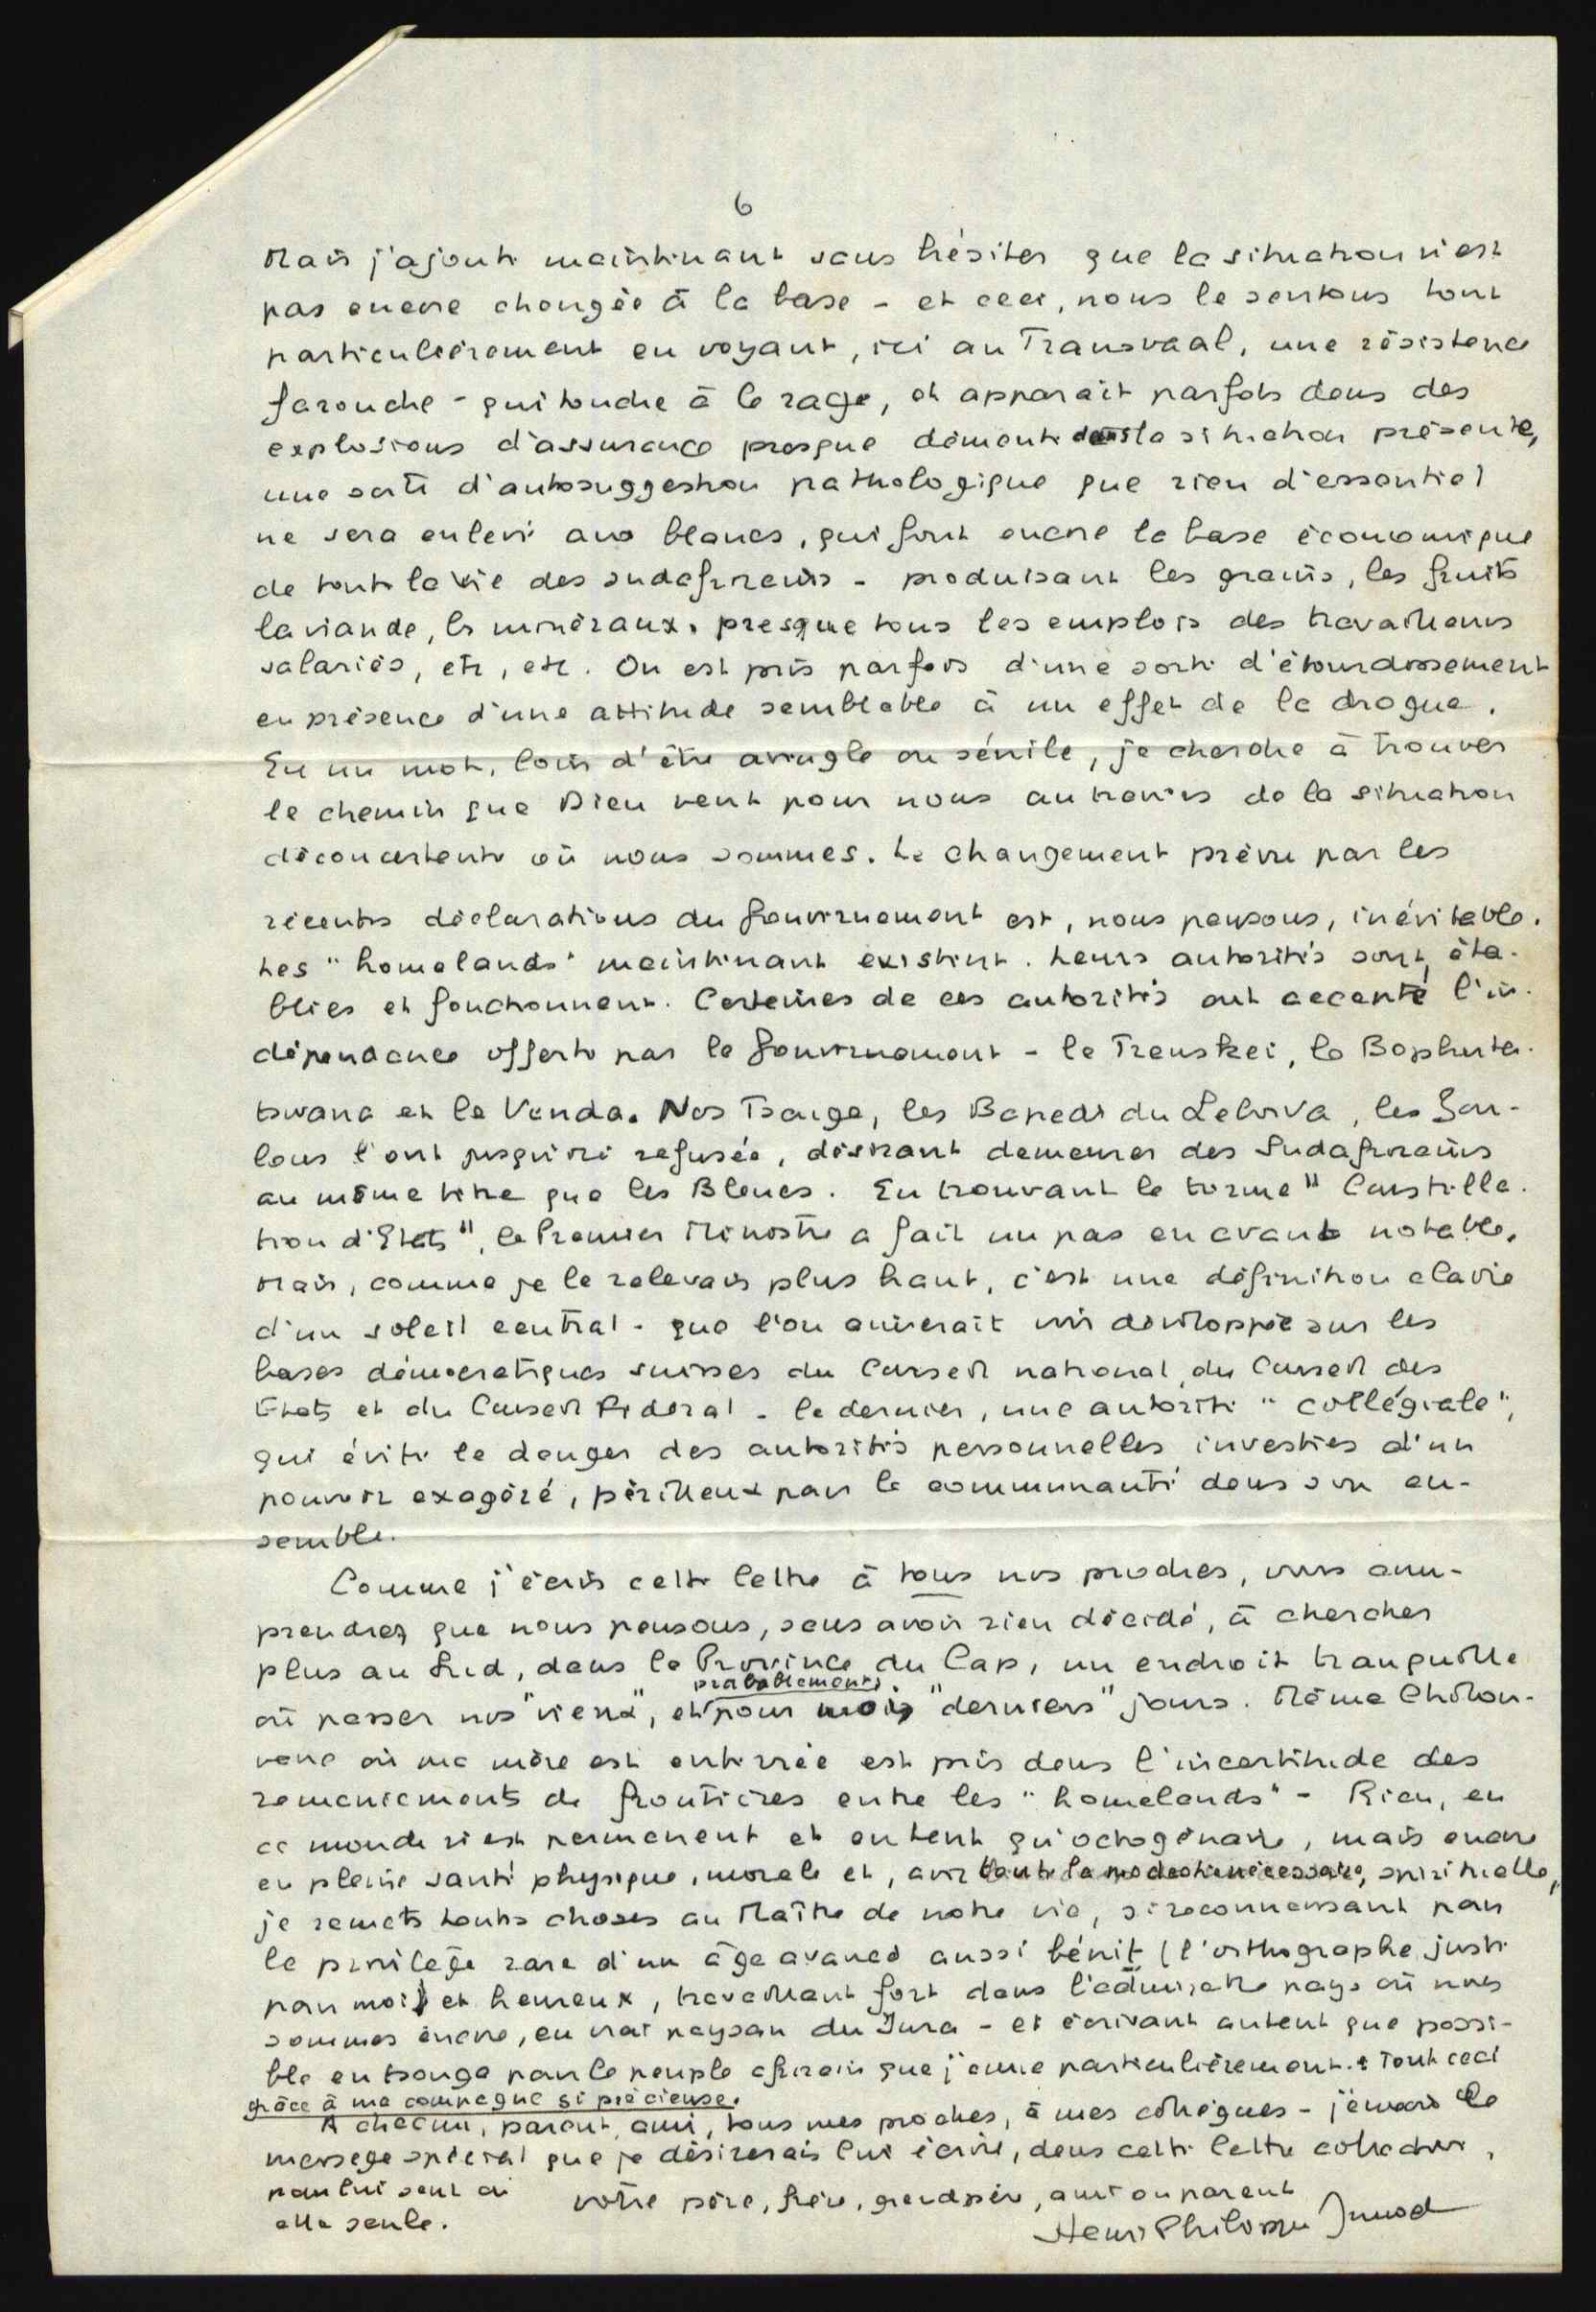 6
Mais j'ajoute maintenant sans hésiter que la situation n'est
pas encore changée à la base - et ceci, nous le sentons tout
particulièrement en voyant, ici au Transvaal, une résistance
farouche - qui touche à la rage, et apparaît parfois dans des
explosions d'assurance presque démente dans la situation présente,
une sorte d'autosuggestion pathologique que rien d'essentiel
ne sera enlevé aux blancs, qui font encore la base économique
de toute la vie des sudafricains - produisant les grains, les fruits
la viande, les minéraux, presque tous les emplois des travailleurs
salariés, etc, etc. On est pris parfois d'une sorte d'étourdissement
en présence d'une attitude semblable à un effet de la drogue.
En un mot, loin d'être aveugle ou sénile, je cherche à trouver
le chemin que Dieu veut pour nous au travers de la situation
déconcertante où nous sommes. Le changement prévu par les
récentes déclarations du Gouvernement est, nous pensons, inévitable.
Les "homelands" maintenant existent. Leurs autorités sont éta-
blies et fonctionnent. Certaines de ces autorités ont accepté l'in-
dépendance offerte par le Gouvernement - le Transkei, le Bophuta-
tswana et le Venda. Nos Tsonga, les Bapedi du Lebowa, les Zou-
lous l'ont jusqu'ici refusée, désirant demeurer des Sudafricains
au même titre que les Blancs. En trouvant le terme "Constella-
tion d'Etats", le Premier Ministre a fait un pas en avant notable.
Mais, comme je le relevais plus haut, c'est une définition
d'un soleil central - que l'on aimerait voir développée sur les
bases démocratiques suisses du Conseil national, du Conseil des
Etats et du Conseil Fédéral - le dernier, une autorité "collégiale",
qui évite le danger des autorités personnelles investies d'un
pouvoir exagéré, périlleux pour la communauté dans son en-
semble.
Comme j'écris cette lettre à tous nos proches, vous com-
prendrez que nous pensons, sans avoir rien décidé, à chercher
plus au Sud, dans la Province du Cap, un endroit tranquille
probablement
où passer nos "vieux", et pour moi, "derniers" jours. Même Shilou-
vane où ma mère est enterrée est pris dans l'incertitude des
remaniements de frontières entre les "homelands" - Rien, en
ce monde n'est permanent et en tant qu'octogénaire, mais encore
en pleine santé physique, morale et, avec toute la modestie nécessaire, spirituelle,
je remets toutes choses au Maître de notre vie, si reconnaissant pour
le privilège rare d'un âge avancé aussi bénit (l'orthographe juste
pour moi) et heureux, travaillant fort dans l'admirable pays où nous
sommes encore, en vrai paysan du Jura - et écrivant autant que possi-
ble en tsonga pour le peuple africain que j'aime particulièrement. Tout ceci
grâce à ma compagne si précieuse.
A chacun, parent, ami, tous mes proches, à mes collègues - j'envoie le
message spécial que je désirerais lui écrire, dans cette lettre collective,
pour lui seul ou
elle seule.
votre père, frère, grandpère, ami ou parent
Henri Philippe Junod